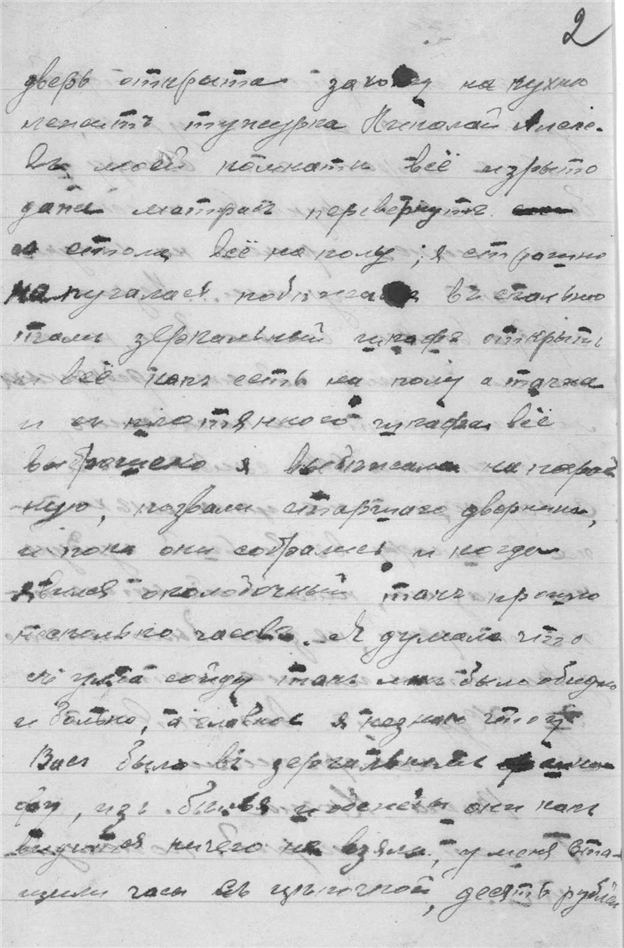 2
дверь открыта захожу на кухню
лежитъ тужурка Николай Алекс.
Въ моей комнати всё изрыто
даже матрацъ перевернутъ
со стола всё на полу; я страшно
напугалася побижала въ спальню
тамъ зеркальный шкафъ открытъ
и всё какъ есть на полу а также
и съ платянного шкафа всё
выброшено я выбижала на парад
ную, позвали старшаго дворника,
и пока они собрались и когда
явился околодочный, такъ прошло
несколько часовъ. Я думала что
съ ума сойду такъ мнъ было обидно
и больно, а главное я незнаю что у
Васъ было въ зеркальномъ шка
фу, изъ былья и одежды они какъ
видится ничего не взяли, у меня ута-
щили часы съ цепочкой, десять рублей